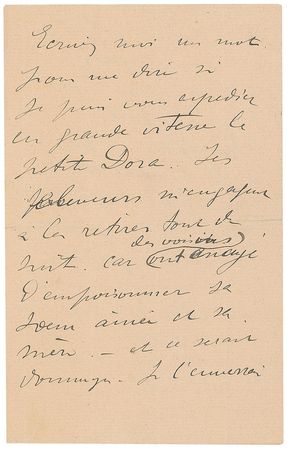 Ecrivez moi un mot
pour me dire si
je puis vous expedier
en grande vitesse la
petite Dora. Les
eleveurs m'engagent
à la retirer tout de
suite. car des voisins ont essayé
d'empoisonner sa
soeur ainée et sa
mère. — et ce serait
dommage. Je l'enverrai